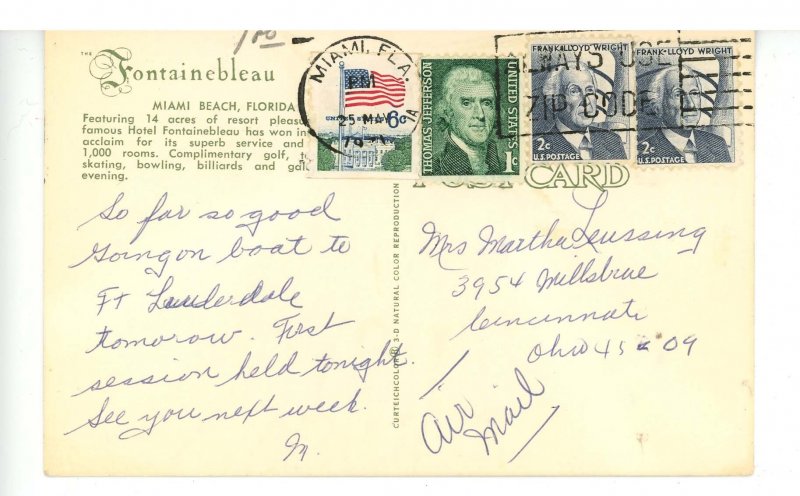 1.00
THE
Fontainebleau
MIAMI BEACH, FLORIDA
Featuring 14 acres of resort
famous Hotel Fontainebleau has won
acclaim for its superb service and
1,000 rooms. Complimentary golf,
skating, bowling, billiards and
evening.
MIAMI, FLA.
PM
25 MAY
UNITED STATES 6c
THOMAS JEFFERSON
UNITED STATES
1c
FRANK·LLOYD WRIGHT
2c
U.S. POSTAGE
FRANK·LLOYD WRIGHT
2c
U.S. POSTAGE
ALWAYS USE
ZIP CODE
POST CARD
So far so good
Going on boat to
Ft Lauderdale
tomorow. First
session held tonight.
See you next week.
M.
CURTEICHCOLOR® 3-D NATURAL COLOR REPRODUCTION
Mrs Martha Leussing
3954 Millsbrae
Cincinnati
Ohio 45209
Air
Mail